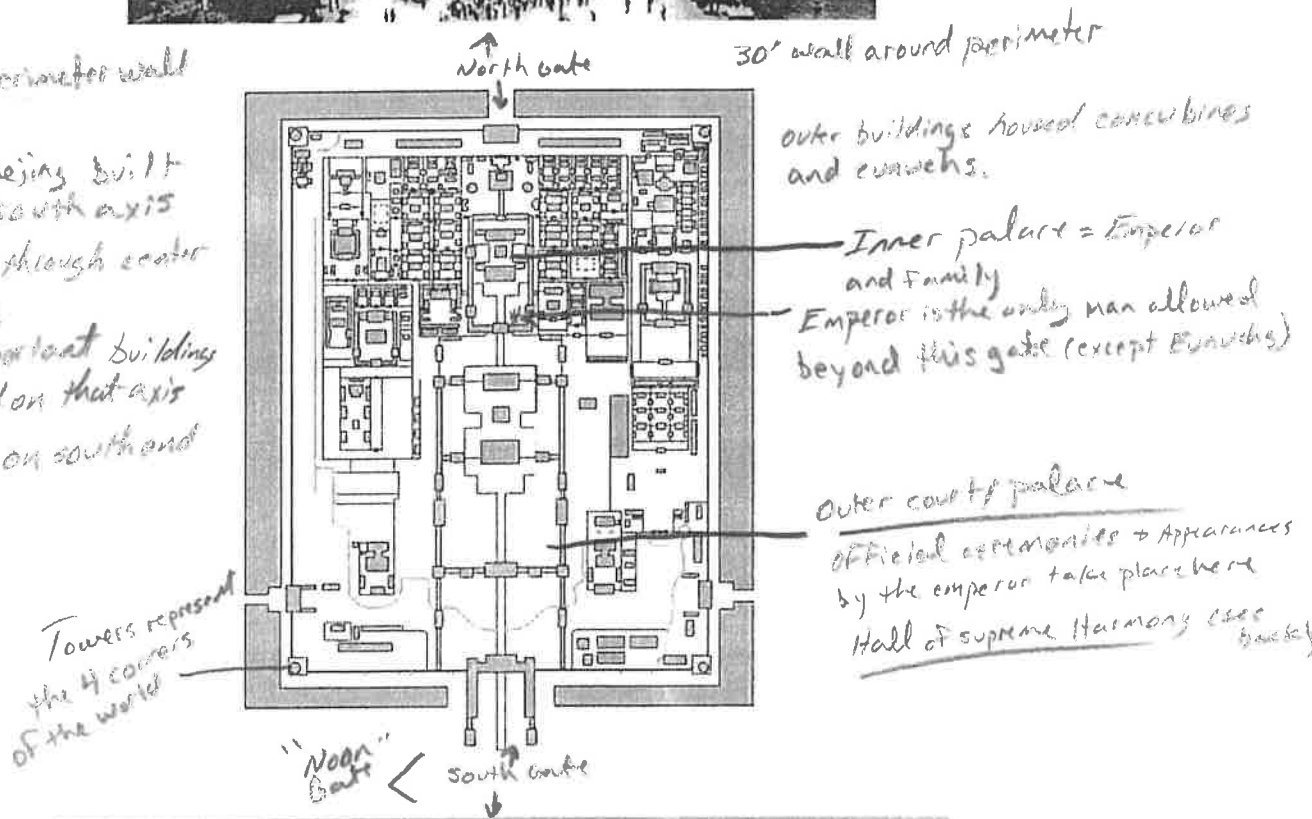 North Gate
30' wall around perimeter
perimeter wall
outer buildings housed concubines
and eunuchs.
built
south axis
through center
Inner palace = Emperor
and Family
Emperor is the only man allowed
beyond this gate (except Eunuchs)
buildings
on that axis
on south end
outer court/palace
official ceremonies + Appearances
by the emperor take place here
Hall of supreme Harmony (see
back)
Towers represent
the 4 corners
of the world
"Noon"
Gate
South Gate